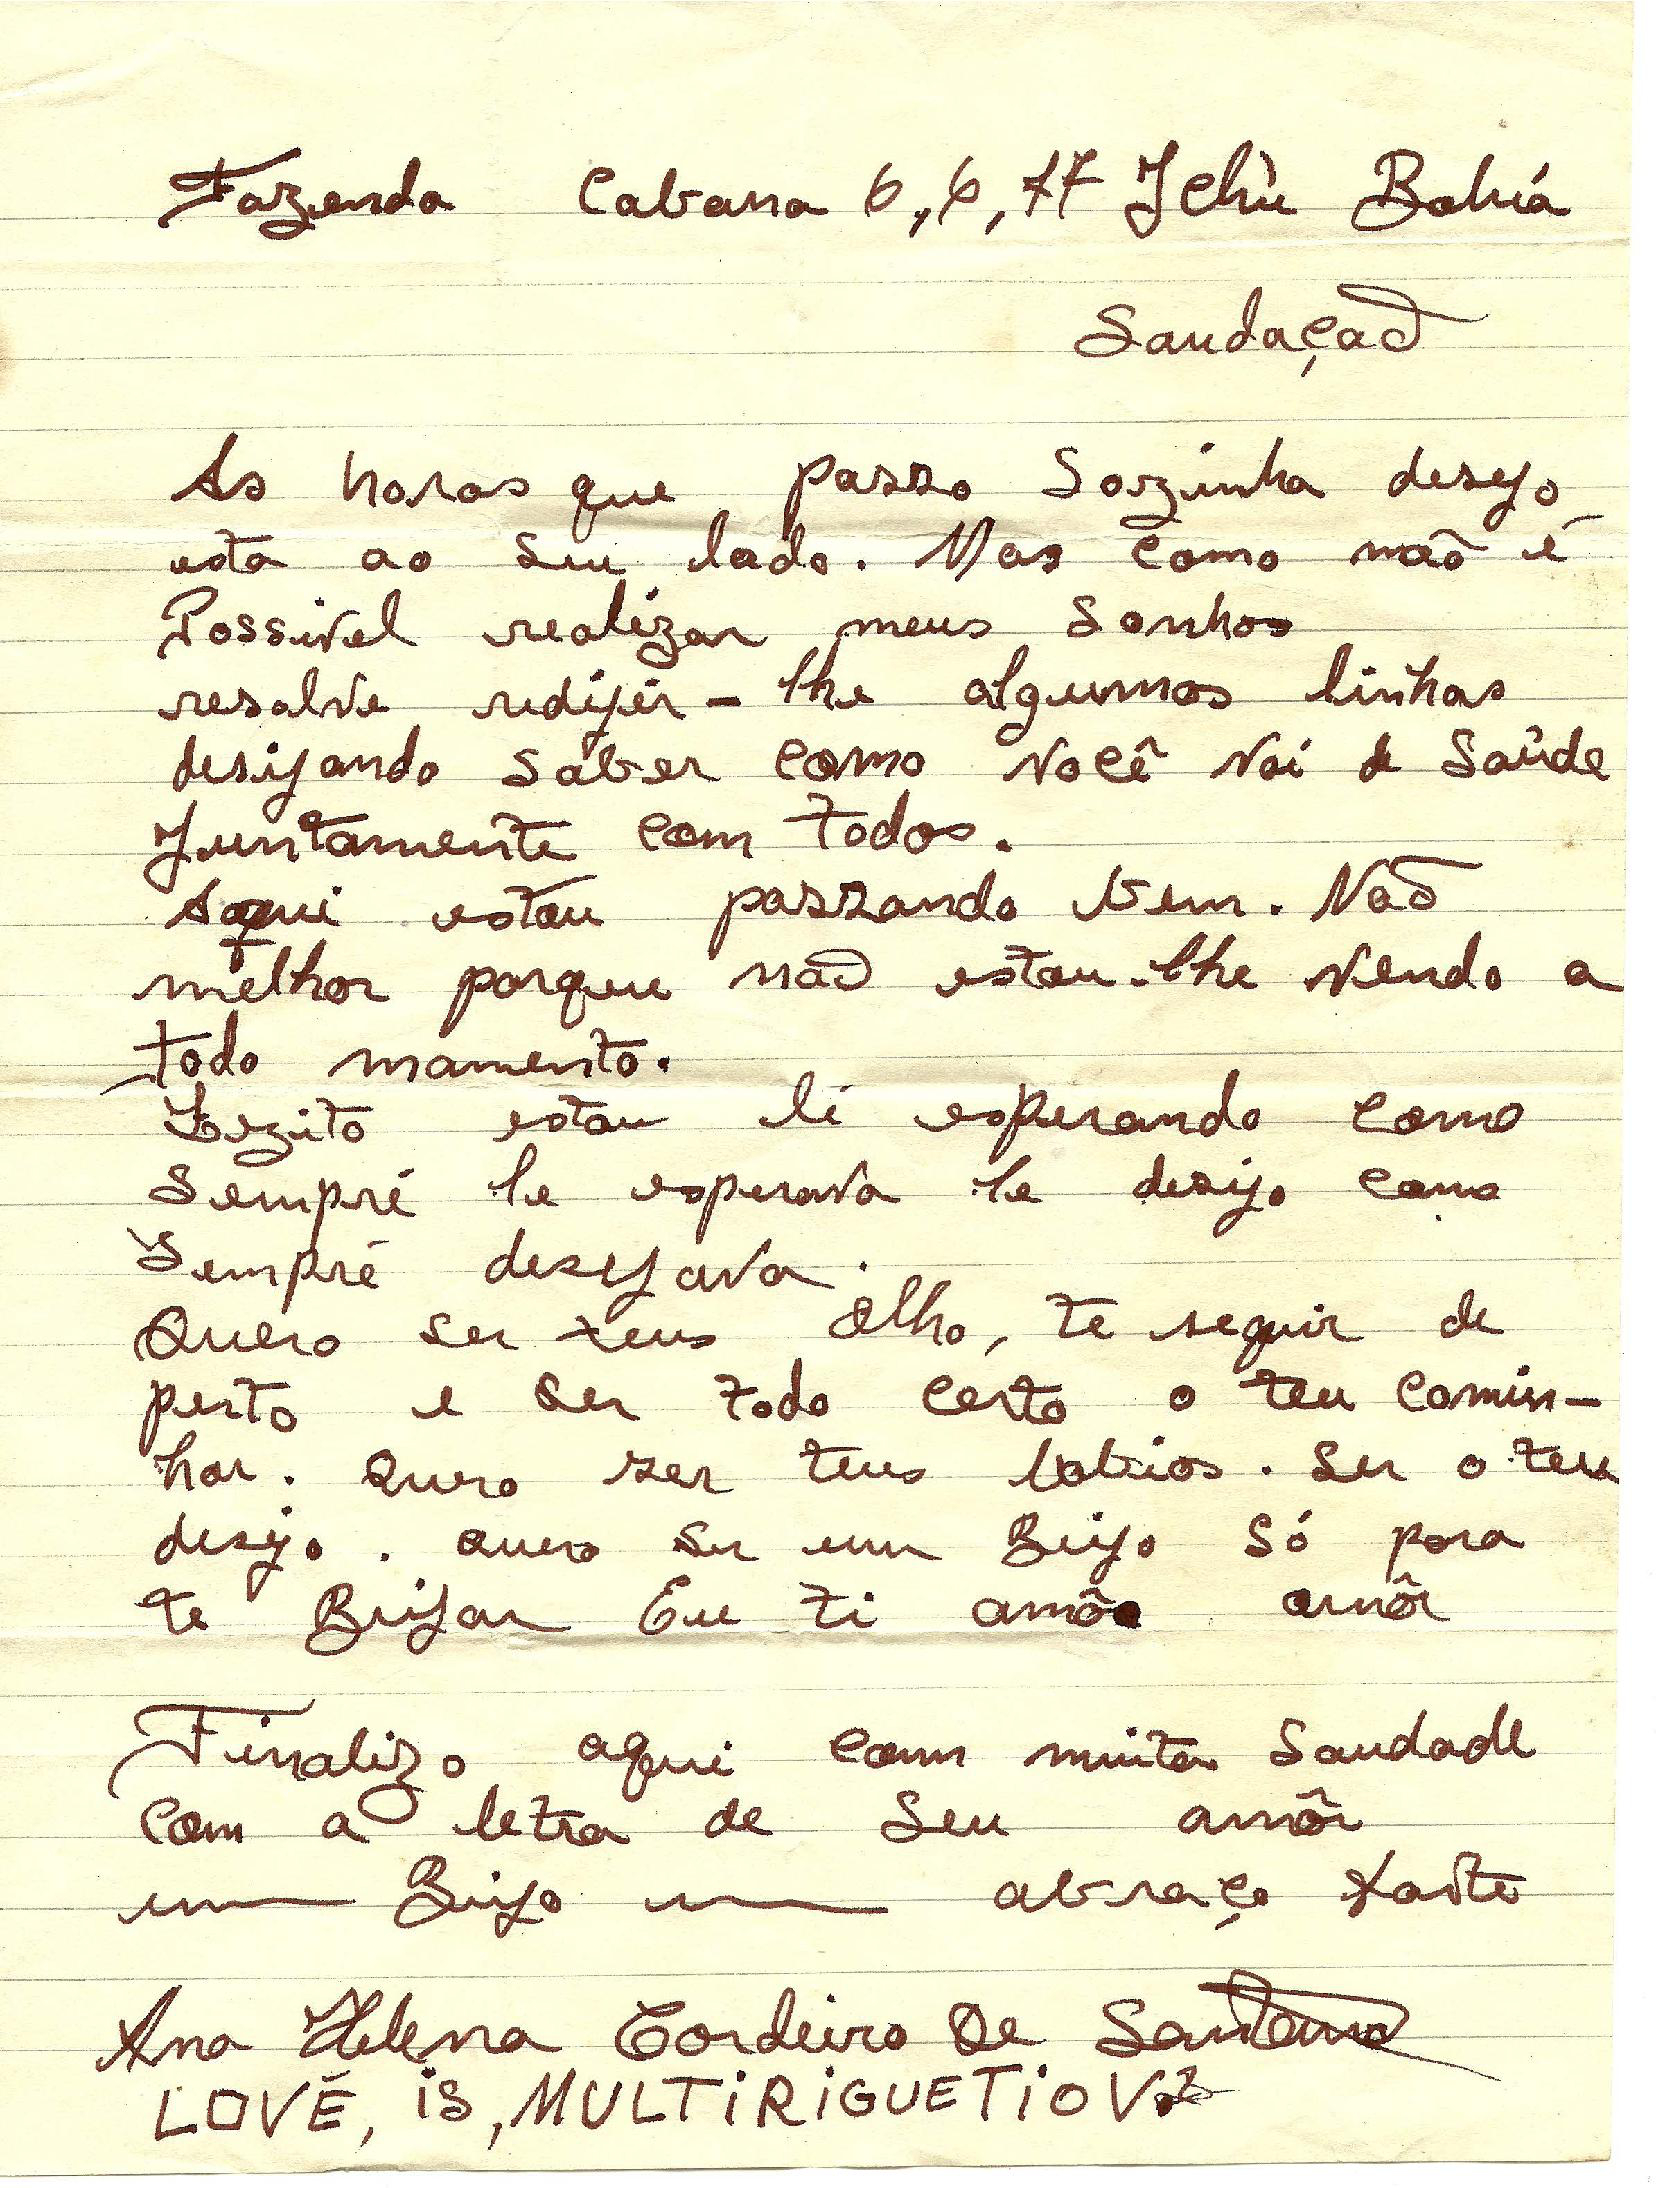 Fazenda Cabana 6,6,77 Ichù Bahiá
Saudaçaõ
As horas que passo Sozinha desejo
esta ao seu lado. Mas como não é
Possivel realizar meus Sonhos
resolve redijir-lhe algumas linhas
desejando saber como você vai de Saûde
Juntamente com todos.
Aqui estou passando bem. Naõ
melhor porque naõ estou-lhe vendo a
todo momento.
Zezito estou li esperando como
Sempré le esperava le desejo como
Sempré desejava.
Quero ser teus olho, te seguir de
perto e ser todo certo o teu camin-
har. Quero ser teus labios. Ser o teu
desejo. Quero ser um Beijo só para
te Beijar Eu ti amô amôr
Finalizo aqui com muita Saudade
com a letra de Seu amôr
um Beijo um abraço
Ana Helena Cordeiro De Santana
LOVE, is, MULTiRiGUETiOV